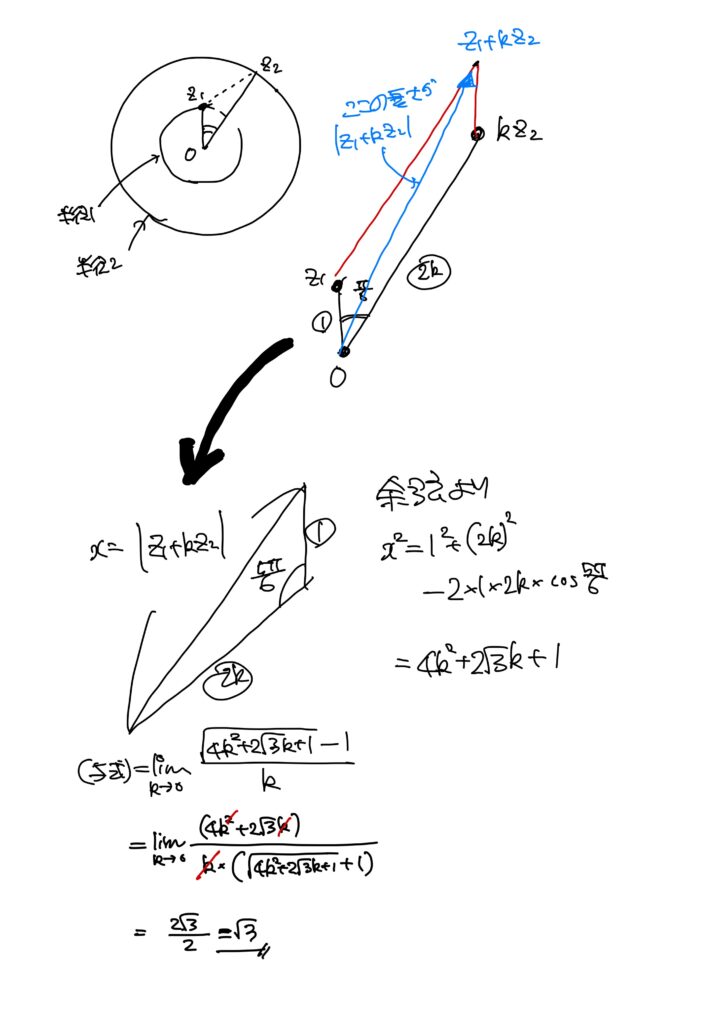 z₂
z₁
O
半径1
半径2
z₁+kz₂
ここの長さが
|z₁+kz₂|
kz₂
z₁
π/6
2k
1
O
x=|z₁+kz₂|
1
5π/6
2k
余弦定理より
x²=1²+(2k)²
-2×1×2k×cos 5π/6
=4k²+2√3k+1
(与式)=lim k→0 (√(4k²+2√3k+1) -1)/k
=lim k→0 (4k²+2√3k)/(k×(√(4k²+2√3k+1)+1))
= 2√3/2 =√3